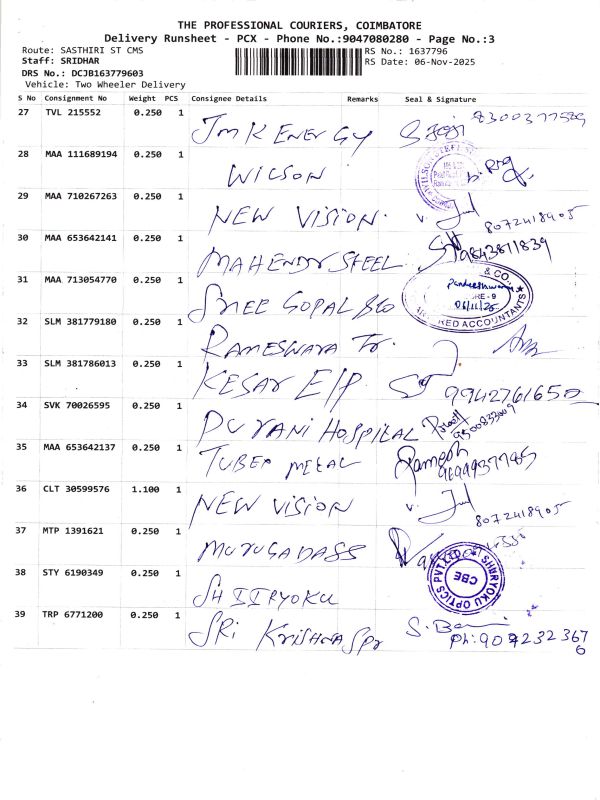 THE PROFESSIONAL COURIERS, COIMBATORE
Delivery Runsheet - PCX - Phone No.:9047080280 - Page No.:3
Route: SASTHIRI ST CMS
RS No.: 1637796
Staff: SRIDHAR
RS Date: 06-Nov-2025
DRS No.: DCJB163779603
Vehicle: Two Wheeler Delivery
S No Consignment No Weight PCS Consignee Details Remarks Seal & Signature
27 TVL 215552 0.250 1 JMK ENERGY 8300377589
28 MAA 111689194 0.250 1 WILSON
29 MAA 710267263 0.250 1 NEW VISION. 8072418905
30 MAA 653642141 0.250 1 MAHENDR STEEL 9843811839
31 MAA 713054770 0.250 1 SHREE GOPAL & CO.
06/11/25
RED ACCOUNTANTS
32 SLM 381779180 0.250 1 RAMESWARA Tr.
33 SLM 381786013 0.250 1 KESAR E/P. 9942761650
34 SVK 70026595 0.250 1 DURANI HOSPITAL 9500833009
35 MAA 653642137 0.250 1 TUBER METAL Ramesh
36 CLT 30599576 1.100 1 NEW VISION 8072418905
37 MTP 1391621 0.250 1 MURUGADASS
38 STY 6190349 0.250 1 SHIIRYOKU SHIIRYOKU OPTICS PVT LTD CBE
39 TRP 6771200 0.250 1 SRi KRISHNA Spr